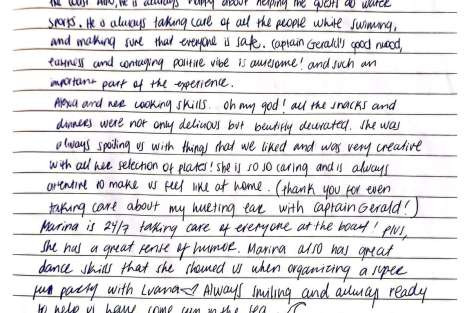 the boat Also, he is always happy about helping the guests do water
sports. He is always taking care of all the people while swimming,
and making sure that everyone is safe. Captain Gerald's good mood,
fairness and contaging positive vibe is awesome! and such an
important part of the experience.
Alexa and her cooking skills. oh my god! all the snacks and
dinners were not only delicious but beutifly decorated. She was
always spoiling us with things that we liked and was very creative
with all her selection of plates! She is so so caring and is always
attentive to make us feel like at home. (thank you for even
taking care about my hurting ear with Captain Gerald!)
Marina is 24/7 taking care of everyone at the boat! plus,
she has a great sense of humor. Marina also has great
dance skills that she showed us when organizing a super
fun party with Luana Always smiling and always ready
to help us have some fun in the sea.